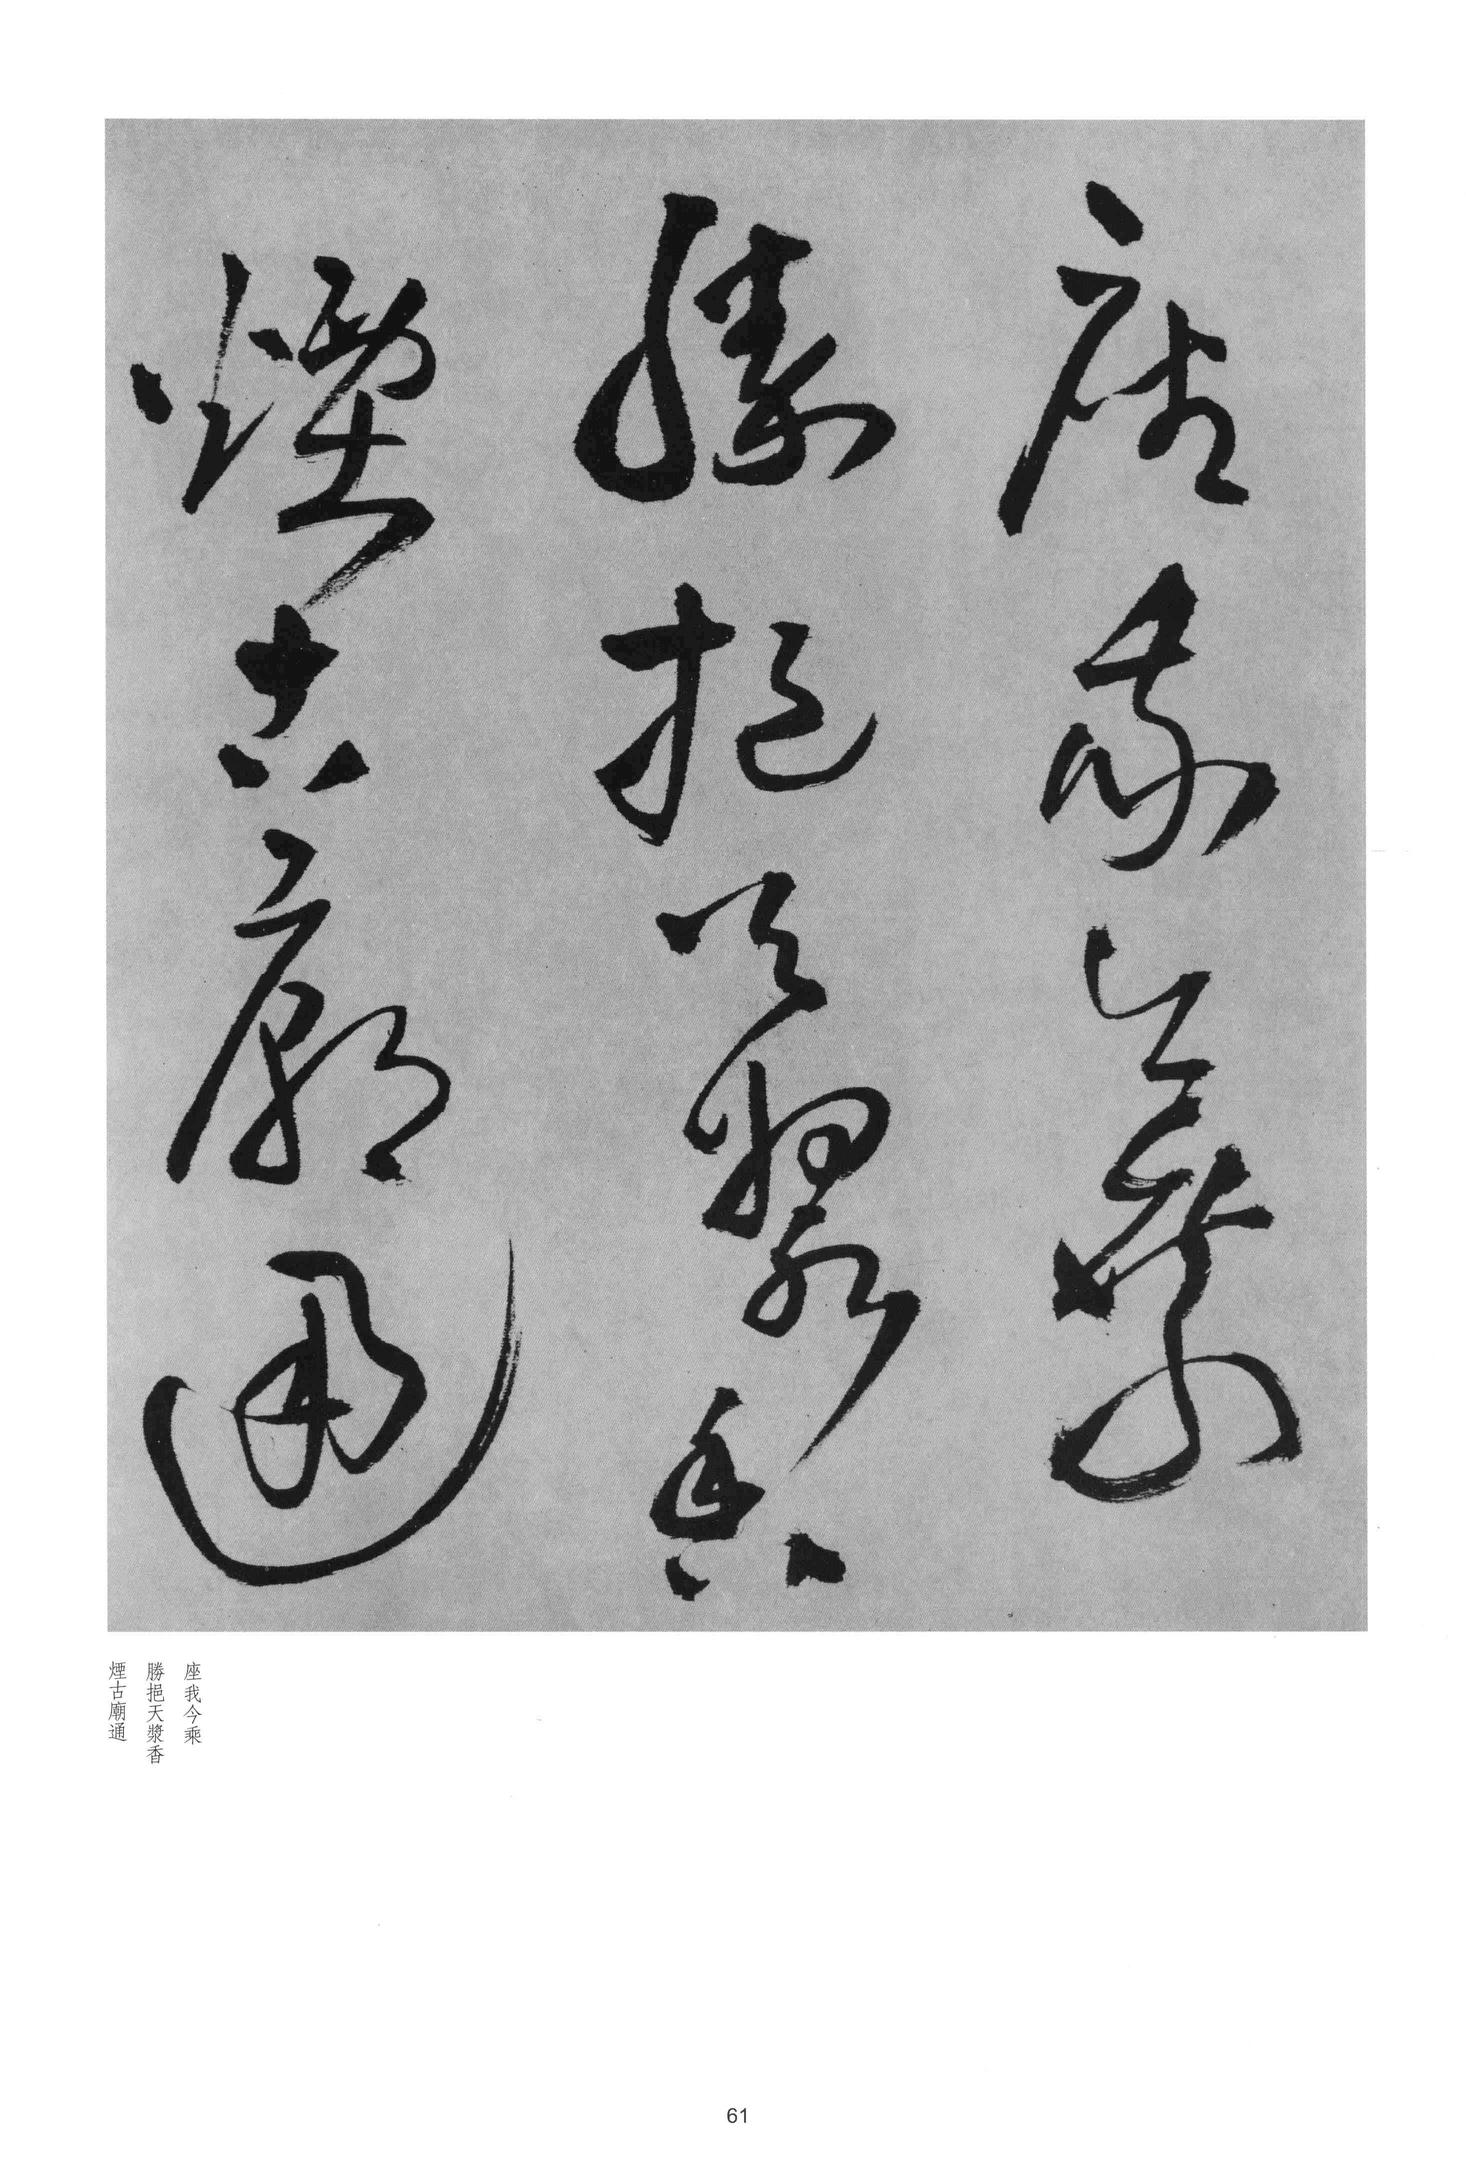 座我今乘
勝挹天漿香
煙古廟通
座我今乘
勝挹天漿香
煙古廟通
61